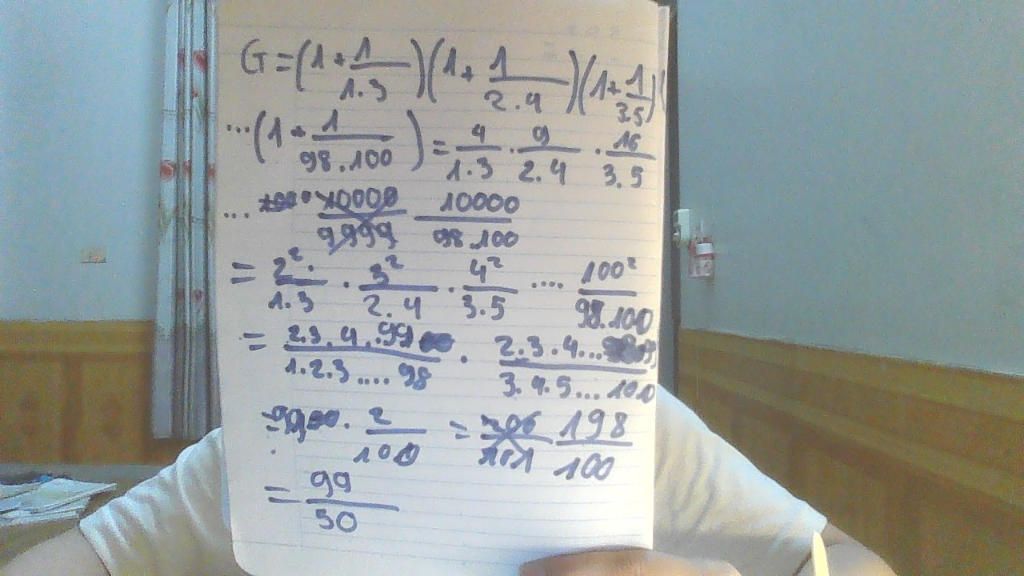 G = (1 + 1/1.3)(1 + 1/2.4)(1 + 1/3.5)(
...(1 + 1/98.100) = 4/1.3 . 9/2.4 . 16/3.5
... 10000/9999 10000/98.100
= 2²/1.3 . 3²/2.4 . 4²/3.5 .... 100²/98.100
= 2.3.4.99/1.2.3....98 . 2.3.4...99/3.4.5...100
= 99 . 2/100 = 198/100
= 99/50